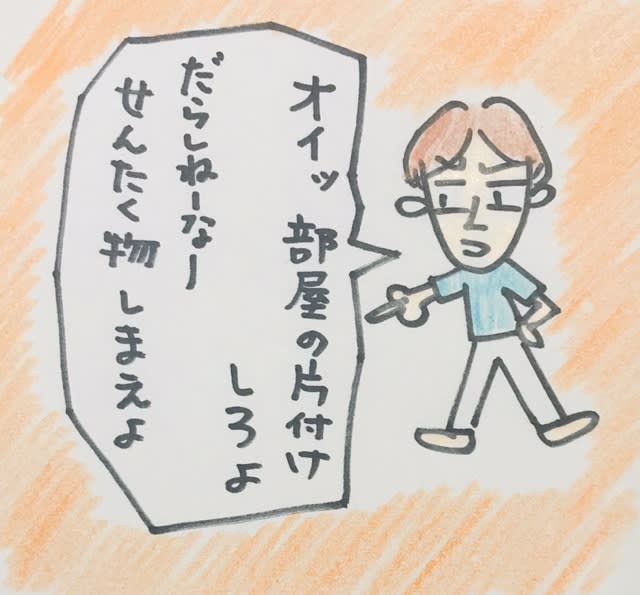 オイッ 部屋の片付け
しろよ
だらしねーなー
せんたく物しまえよ